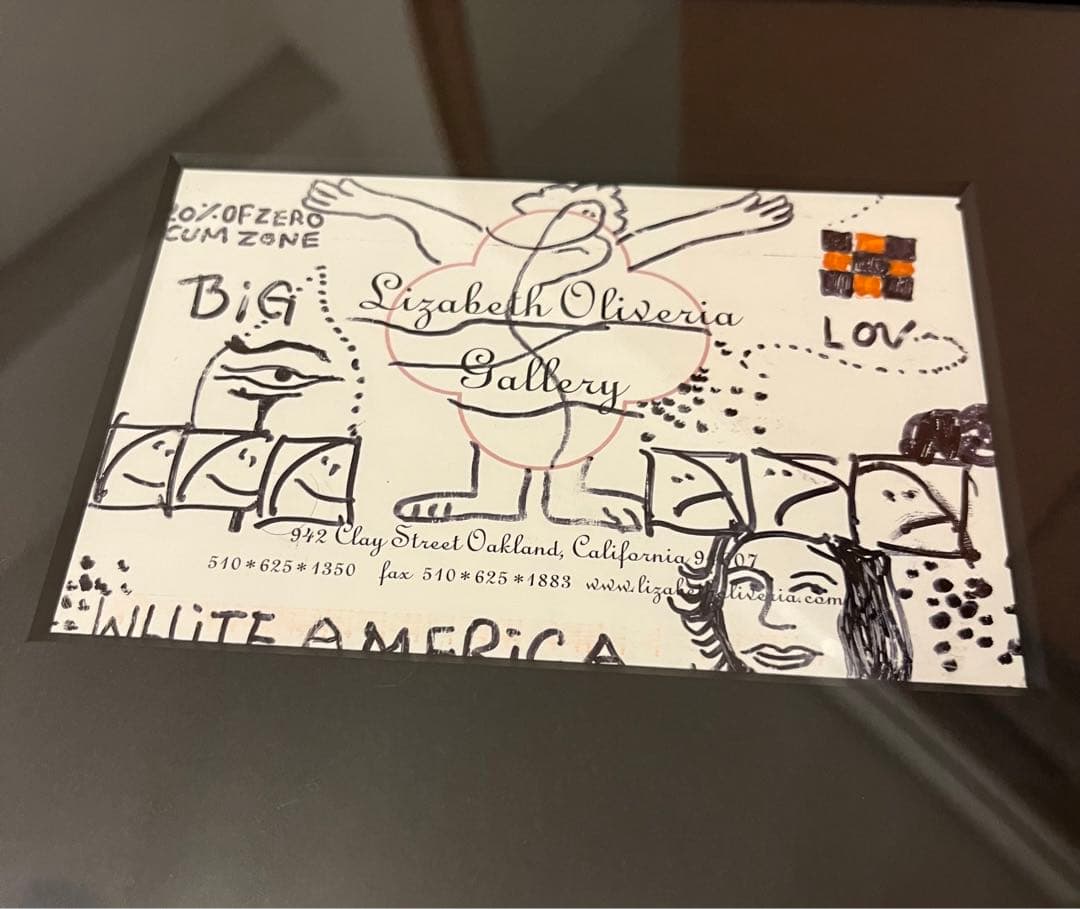 20% OF ZERO
CUM ZONE
BiG
Lizabeth Oliveria
Gallery
LOV
942 Clay Street Oakland, California
510*625*1350 fax 510*625*1883
WHiTE AMERiCA